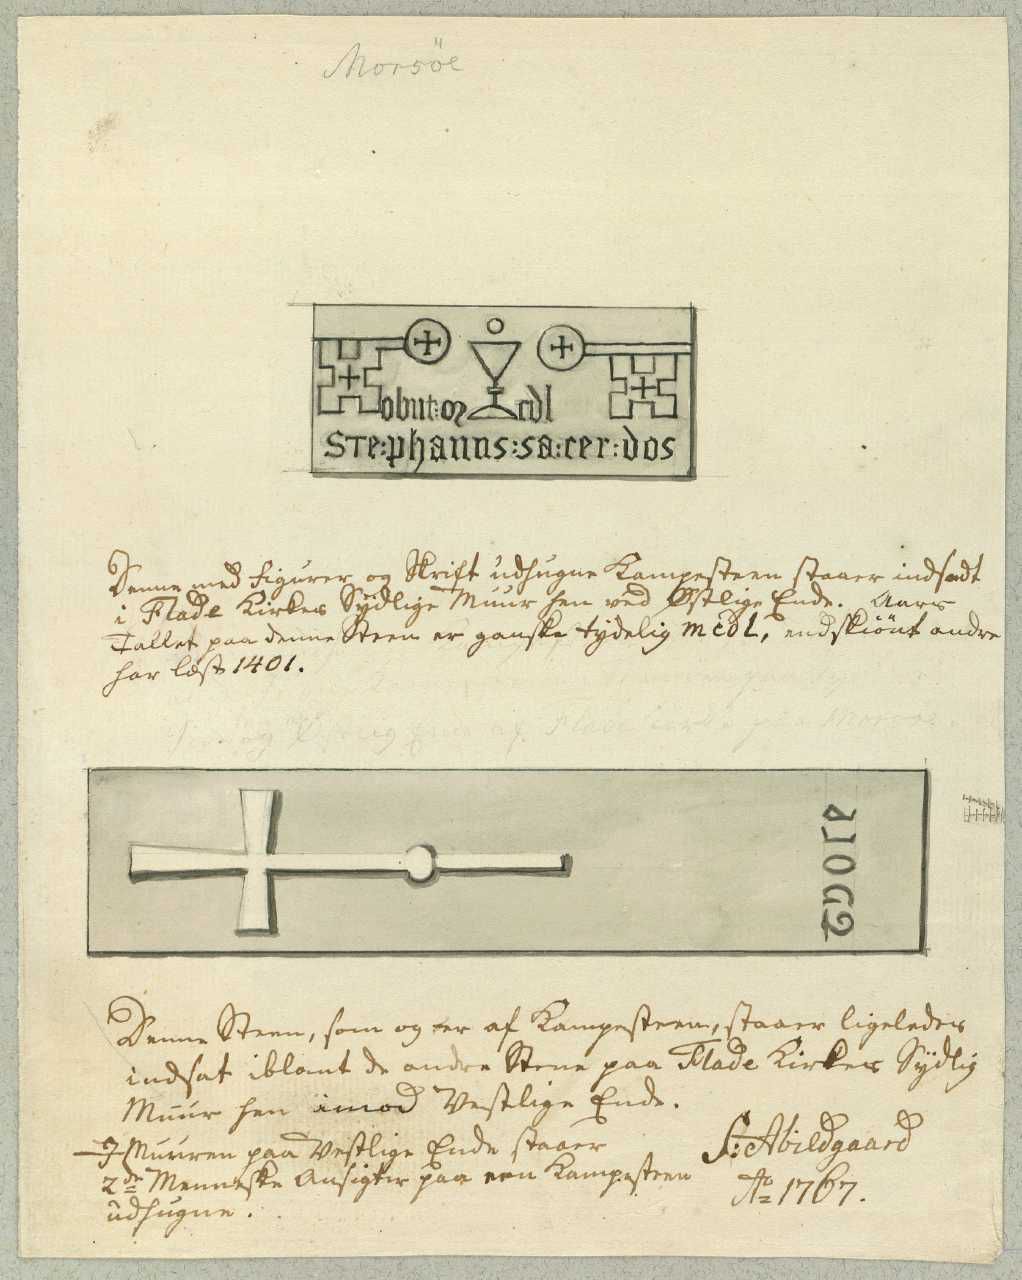 Morsöe
obiit:
cdl
STe:phanns:sa:cer:dos
Denne med Figurer og Skrift udhugne Kampesteen staaer indsadt
i Flade Kirkes Sÿdlige Muur hen ved Østlige Ende. Aars
Tallet paa denne Steen er ganske tÿdelig mcdl, endskiönt andre
har læst 1401.
af Flade Kirke paa Morsöe.
Denne Steen, som og er af Kampesteen, staaer ligeledes
indsat iblant de andre Stene paa Flade Kirkes Sÿdlig
Muur hen imod Vestlige Ende.
I Muuren paa Vestlige Ende staaer
2de Menneske Ansigter paa een Kampesteen
udhugne.
S: Abildgaard
Ao 1767.